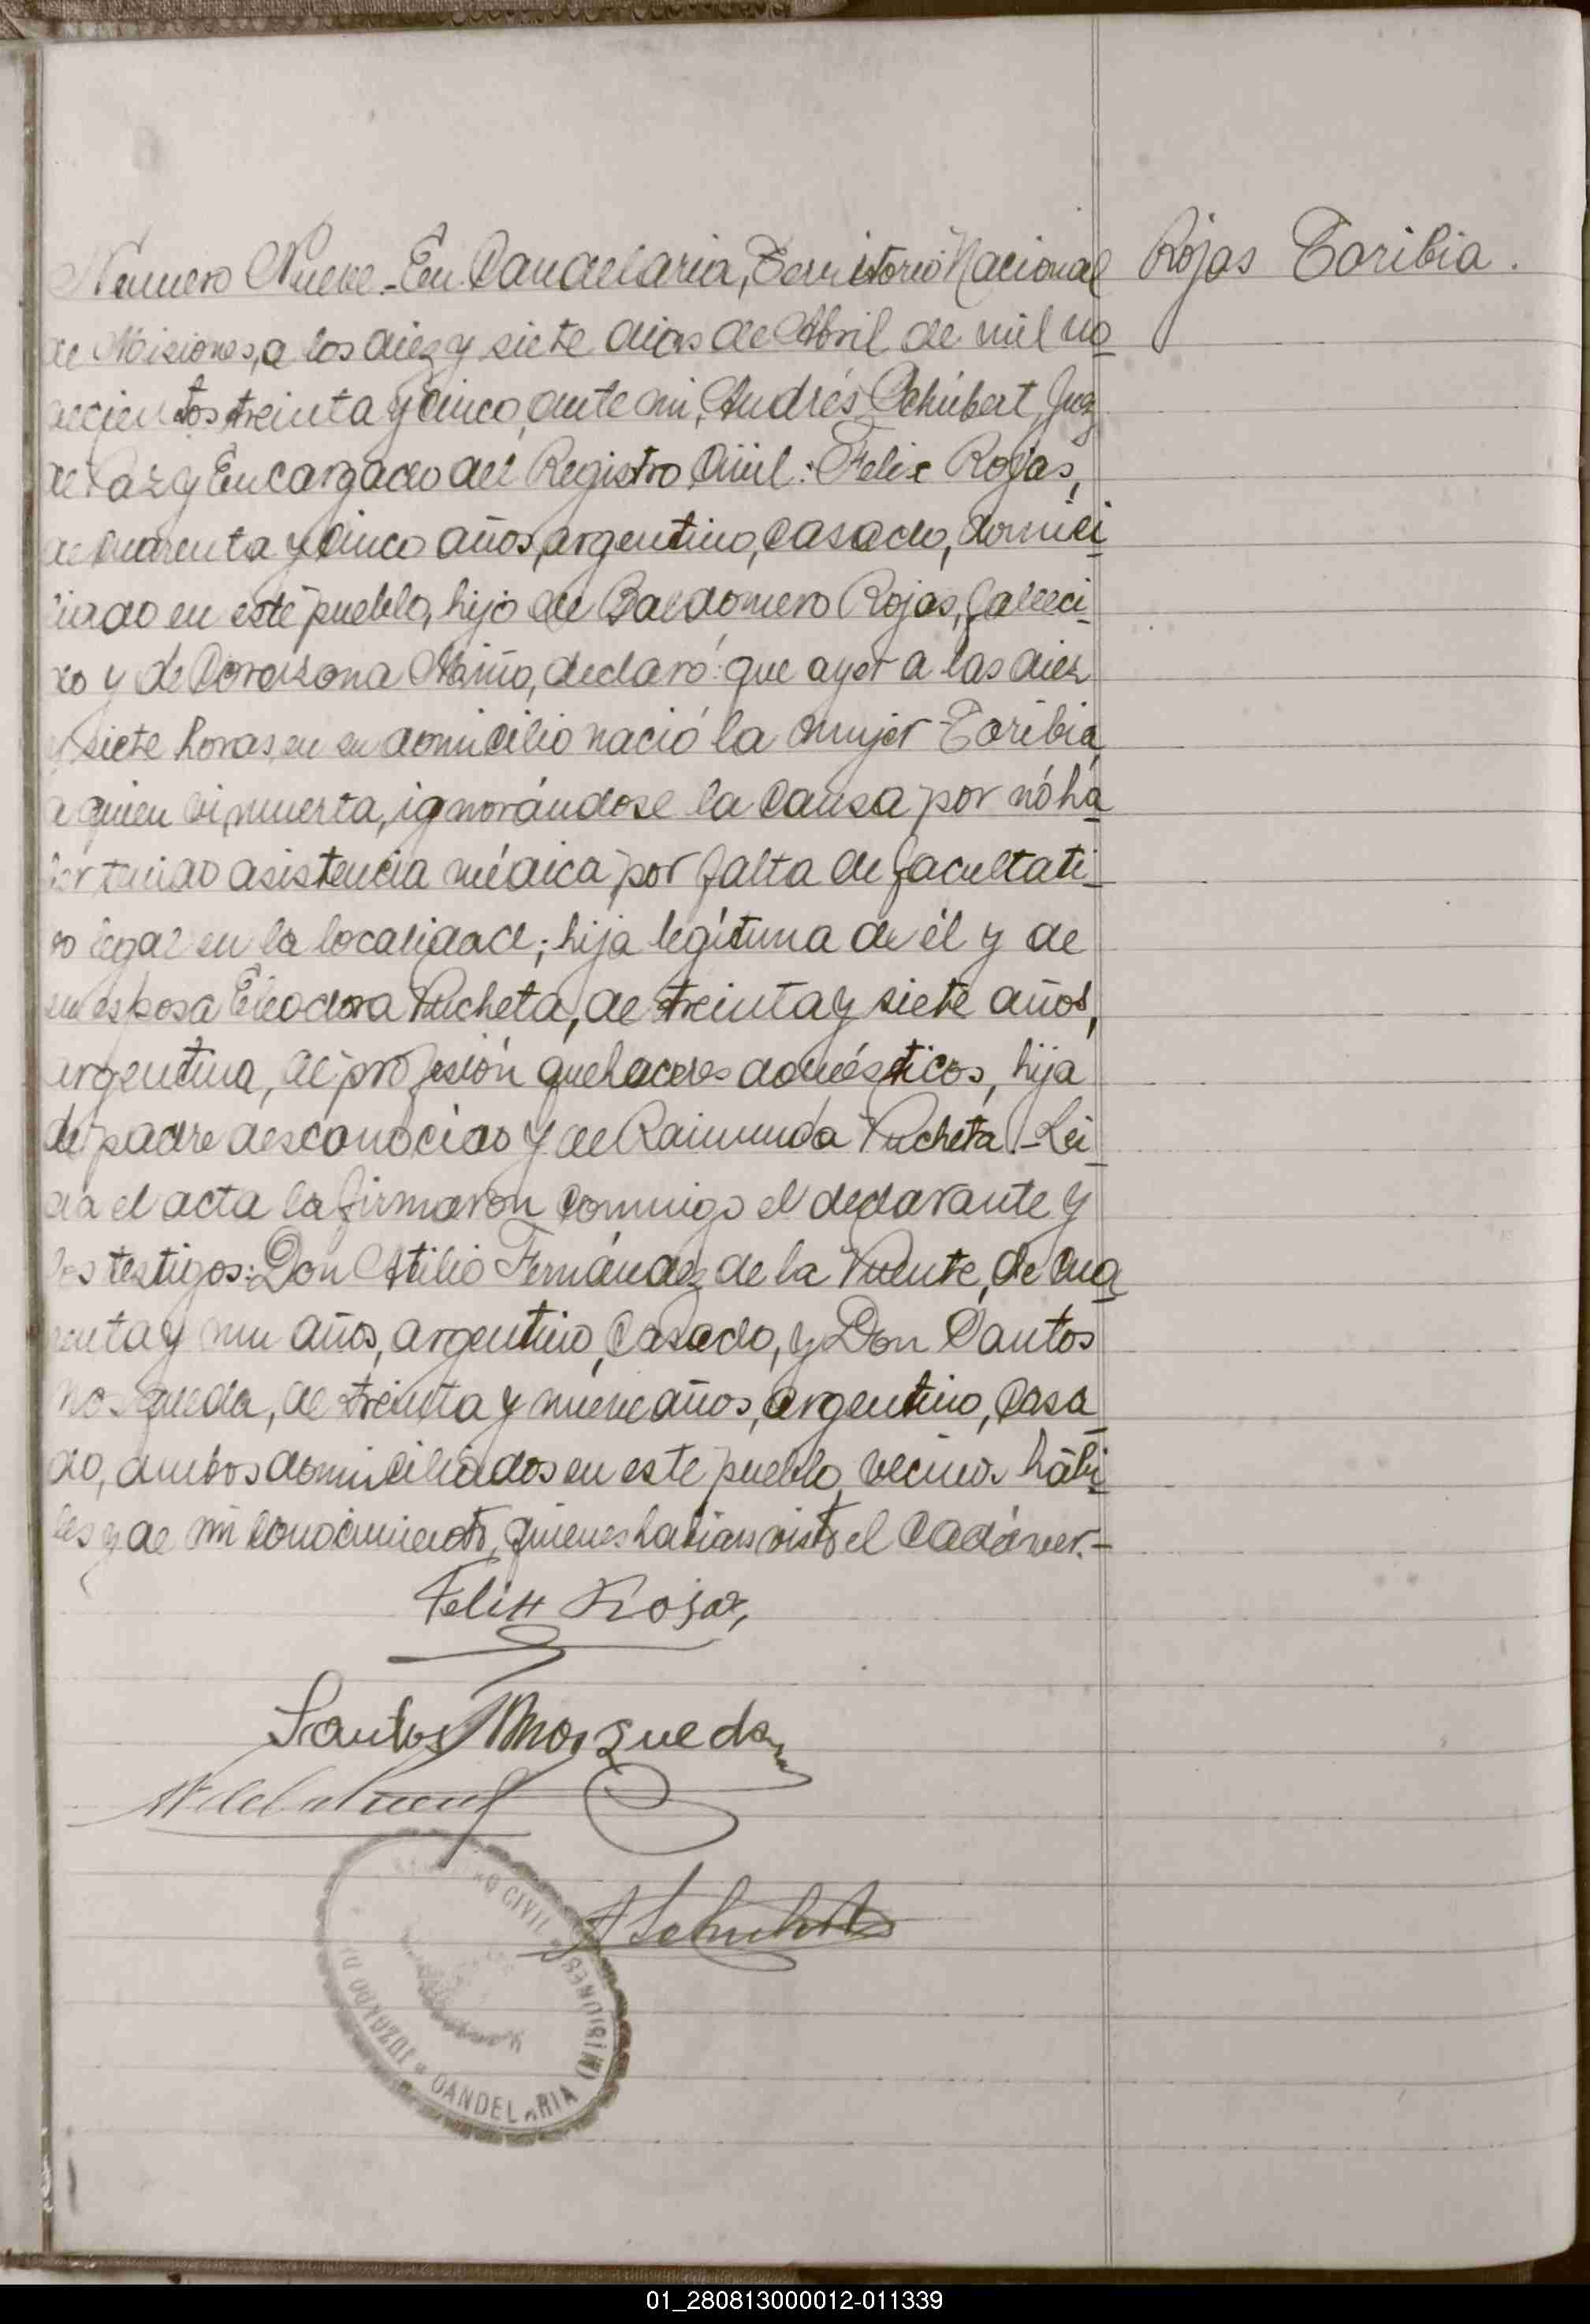 Numero Nueve.- En Candelaria, Territorio Nacional
Rojas Toribia.
de Misiones, a los diez y siete dias de Abril de mil no
vecientos treinta y cinco, ante mi, Andrés Schubert, Juez
de Paz y Encargado del Registro Civil: Felix Rojas,
de cuarenta y cinco años, argentino, casado, domici
liado en este pueblo, hijo de Baldomero Rojas, falleci
do y de Corazona Miño, declaró: que ayer a las diez
y siete horas, en su domicilio nació la mujer Toribia,
a quien vi muerta, ignorándose la causa por nó ha
ber tenido asistencia médica, por falta de facultati
vo legal en la localidad; hija legítima de él y de
su esposa Eleodora Pucheta, de treinta y siete años,
argentina, de profesión quehaceres domésticos, hija
de padre desconocido y de Raimunda Pucheta.- Lei
da el acta la firmaron conmigo el declarante y
los testigos: Don Atilio Fernández de la Puente, de cua
renta y un años, argentino, casado, y Don Santos
Mosqueda, de treinta y nueve años, argentino, casa
do, ambos domiciliados en este pueblo, vecinos hábi
les y de mi conocimiento, quienes habian visto el cadáver.-
Felix Rojas,
Santos Mosqueda
A Schubert
CIVIL
(MISIONES)
JUZGADO DE
CANDELARIA
01_280813000012-011339